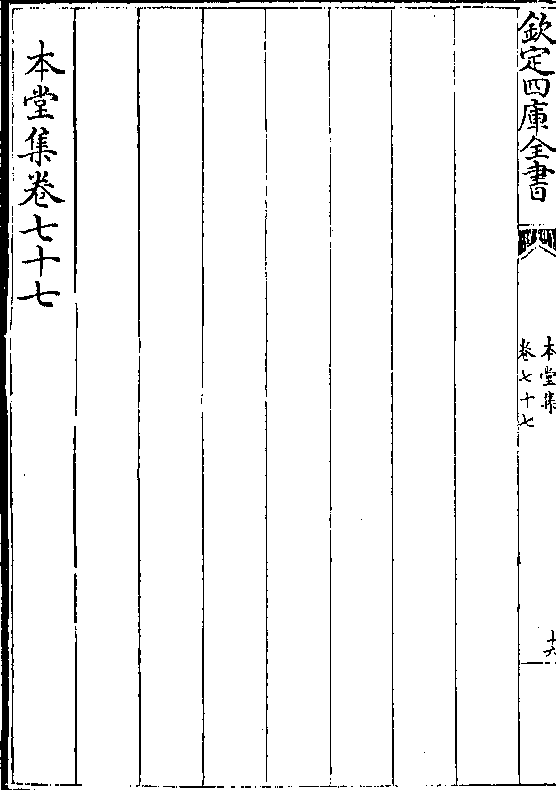 欽定四庫全書
本堂集
卷七十七
十六
本堂集卷七十七